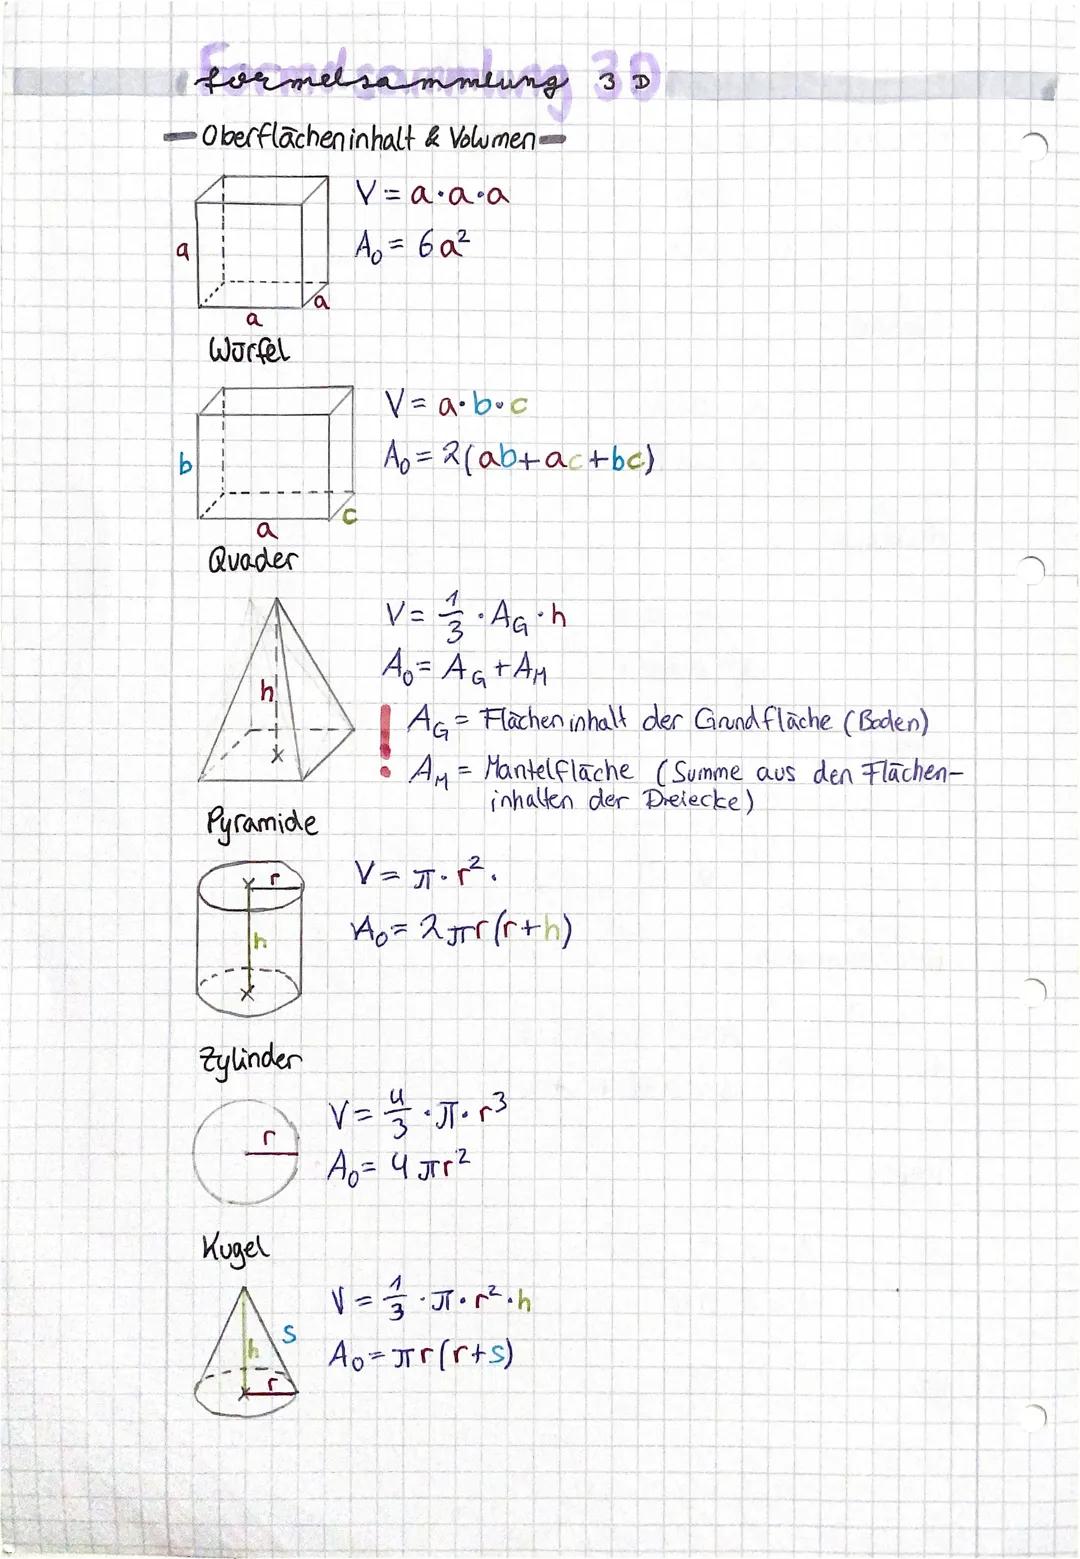 Formelsammlung 3D
formelsammlung 3 D
Oberflächeninhalt & Volumen
V = a·a·a
A₀ = 6a²
a
a
a
Würfel
V = a·b·c
A₀ = 2(ab+ac+bc)
b
c
a
Quader
V = 1/3 · A_G · h
A₀ = A_G + A_M
h
! A_G = Flächeninhalt der Grundfläche (Boden)
A_M = Mantelfläche (Summe aus den Flächen-
inhalten der Dreiecke)
Pyramide
r
V = π · r² ·
A₀ = 2πr(r+h)
h
Zylinder
V = 4/3 · π · r³
r
A₀ = 4πr²
Kugel
V = 1/3 · π · r² · h
s
h
A₀ = πr(r+s)
r